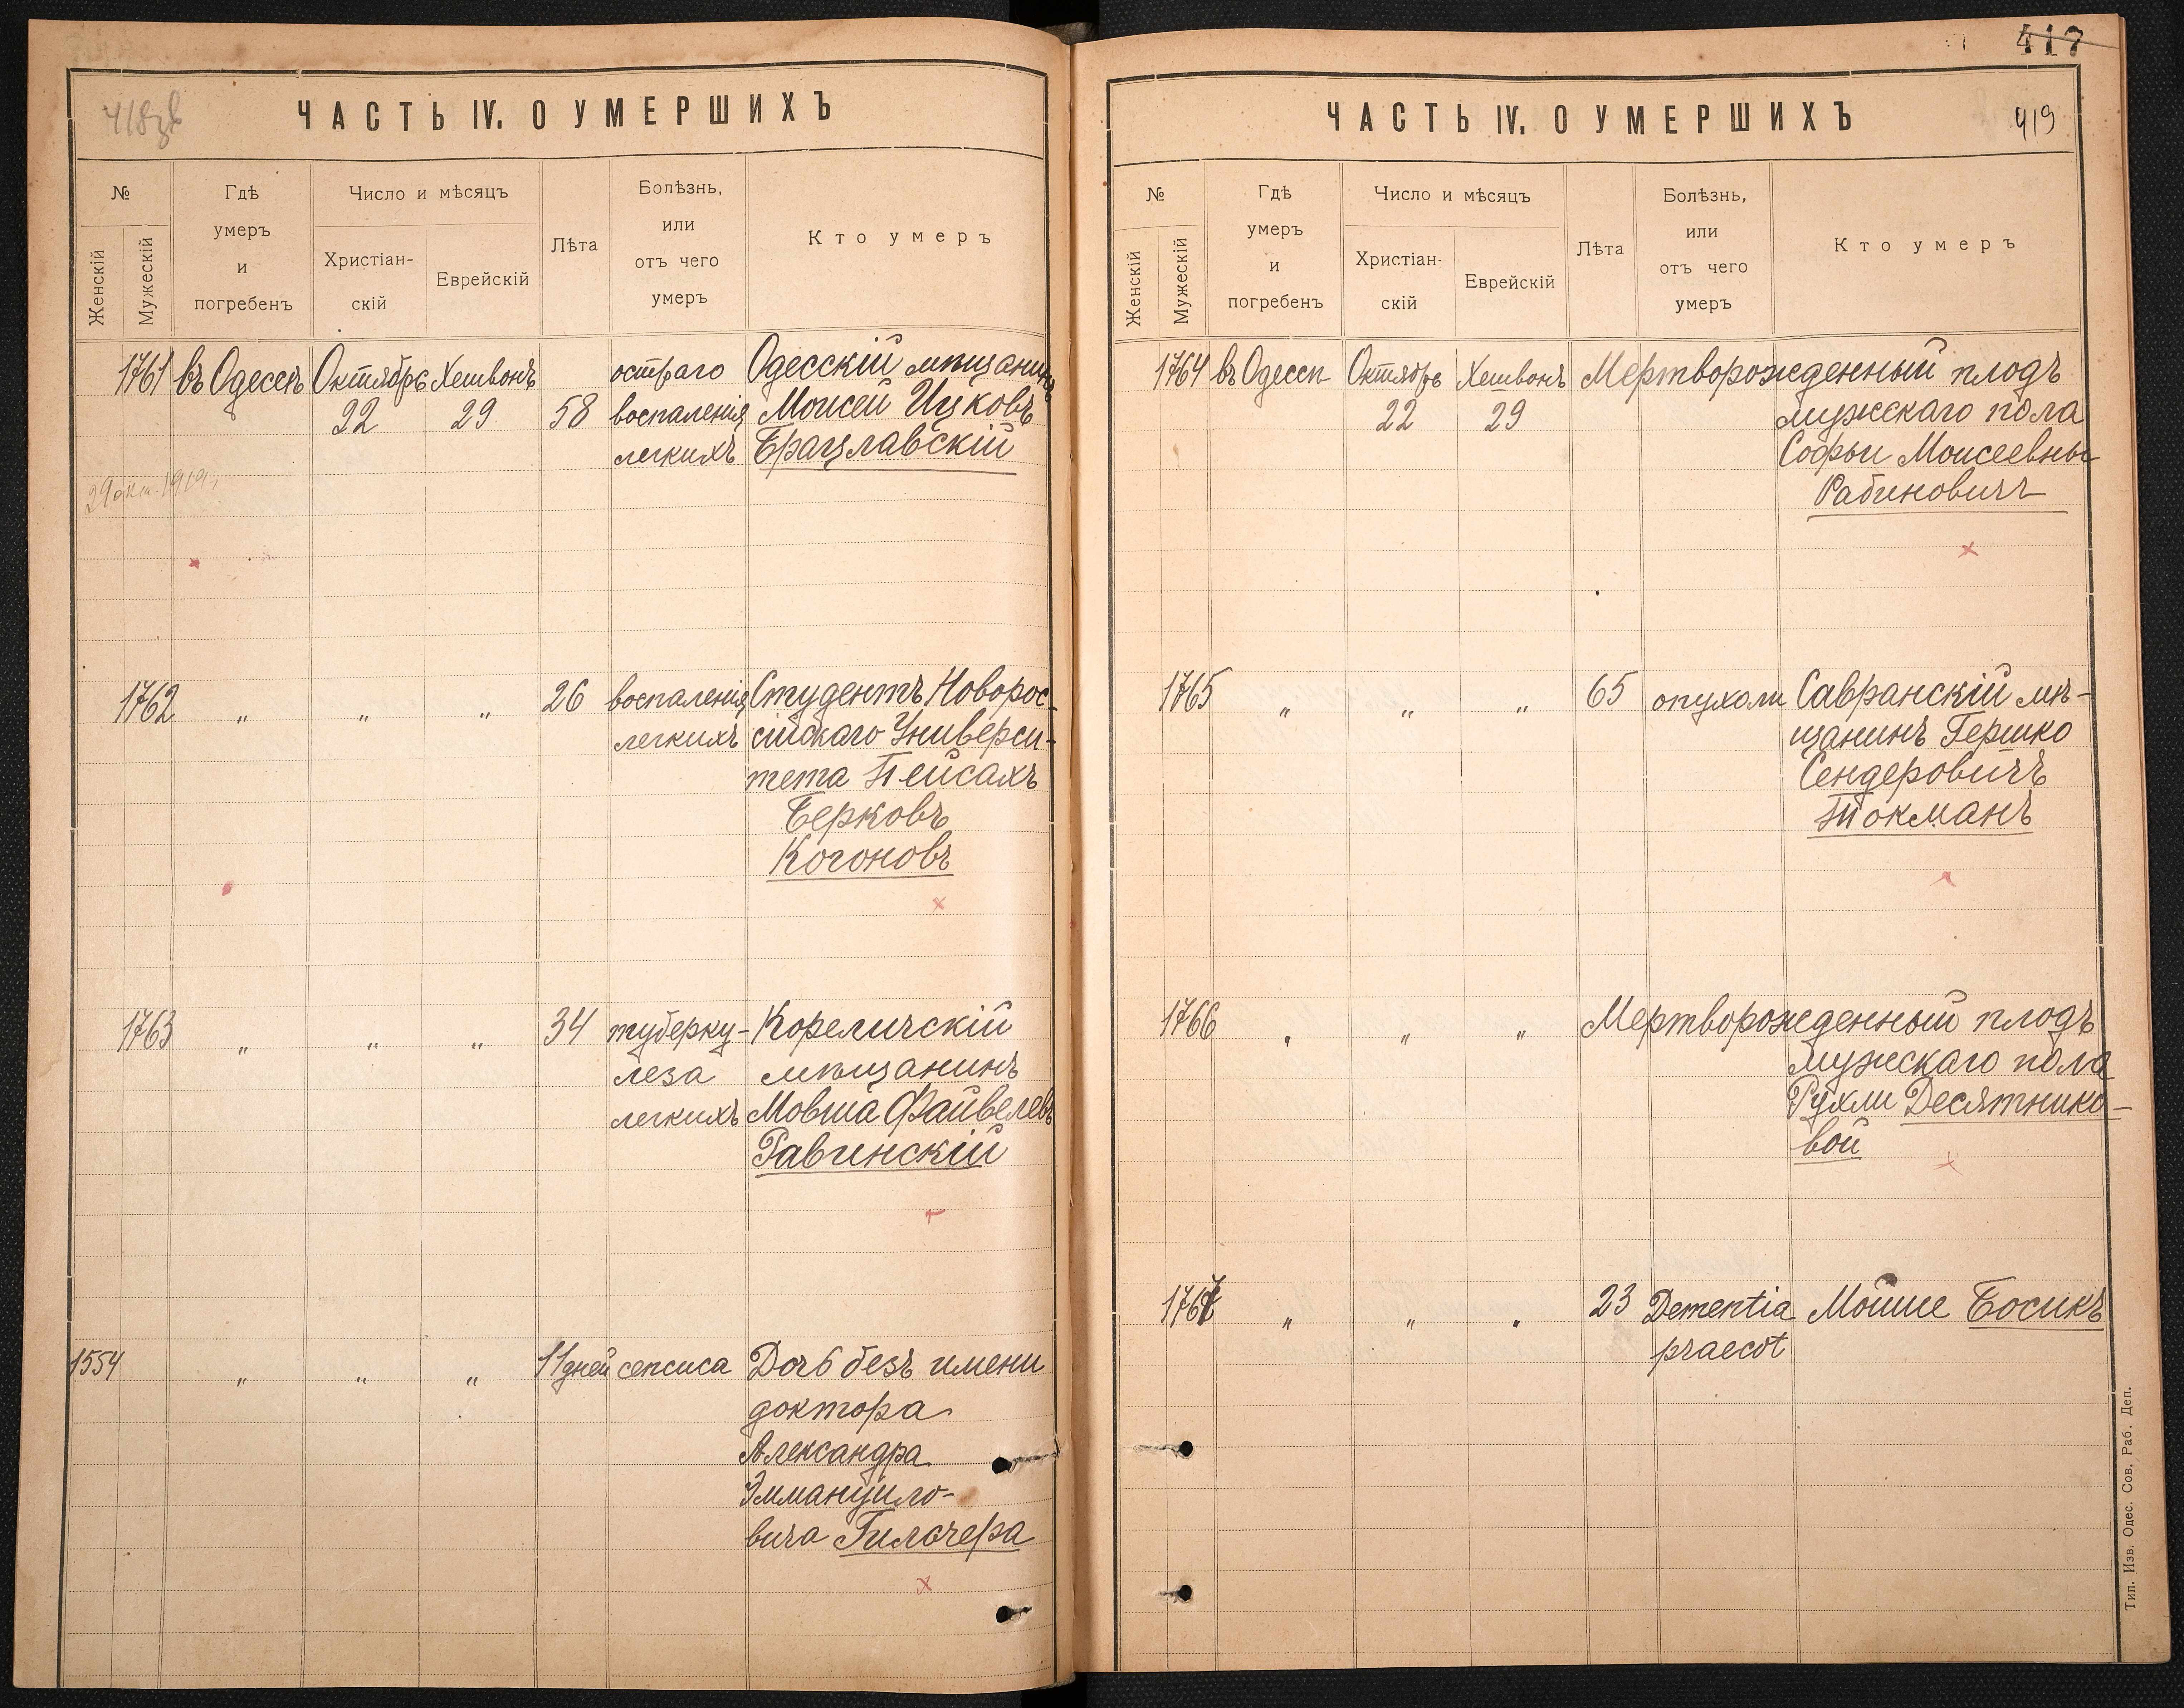 418зв
ЧАСТЬ IV. О УМЕРШИХЪ
№
Женскій
Мужескій
Гдѣ
умеръ
и
погребенъ
Число и мѣсяцъ
Христіан-
скій
Еврейскій
Лѣта
Болѣзнь,
или
отъ чего
умеръ
Кто умеръ
1761 въ Одессѣ Октябрь Хешвонъ остраго Одесскій мѣщанинъ
22 29 58 воспаленія Моисей Ицковъ
легкихъ Брацлавскій
29 окт. 1919 г.
1762 " " " 26 воспаленія Студентъ Новорос-
легкихъ сійскаго Универси-
тета Пейсахъ
Берковъ
Когоновъ
1763 " " " 34 туберку- Кореличскій
леза мѣщанинъ
легкихъ Мовша Файвелевъ
Равинскій
1554 " " " 11 дней сепсиса Дочь безъ имени
доктора
Александра
Эммануило-
вича Гильчера
417
419
ЧАСТЬ IV. О УМЕРШИХЪ
№
Женскій
Мужескій
Гдѣ
умеръ
и
погребенъ
Число и мѣсяцъ
Христіан-
скій
Еврейскій
Лѣта
Болѣзнь,
или
отъ чего
умеръ
Кто умеръ
1764 въ Одессѣ Октябрь Хешвонъ Мертворожденный плодъ
22 29 мужескаго пола
Софьи Моисеевны
Рабиновичъ
1765 " " " 65 опухоли Савранскій мѣ-
щанинъ Гершко
Сендеровичъ
Токманъ
1766 " " " Мертворожденный плодъ
мужскаго пола
Рухли Десятнико-
вой
1767 " " " 23 Dementia Мойше Босикъ
praecot
Тип. Изв. Одес. Сов. Раб. Деп.